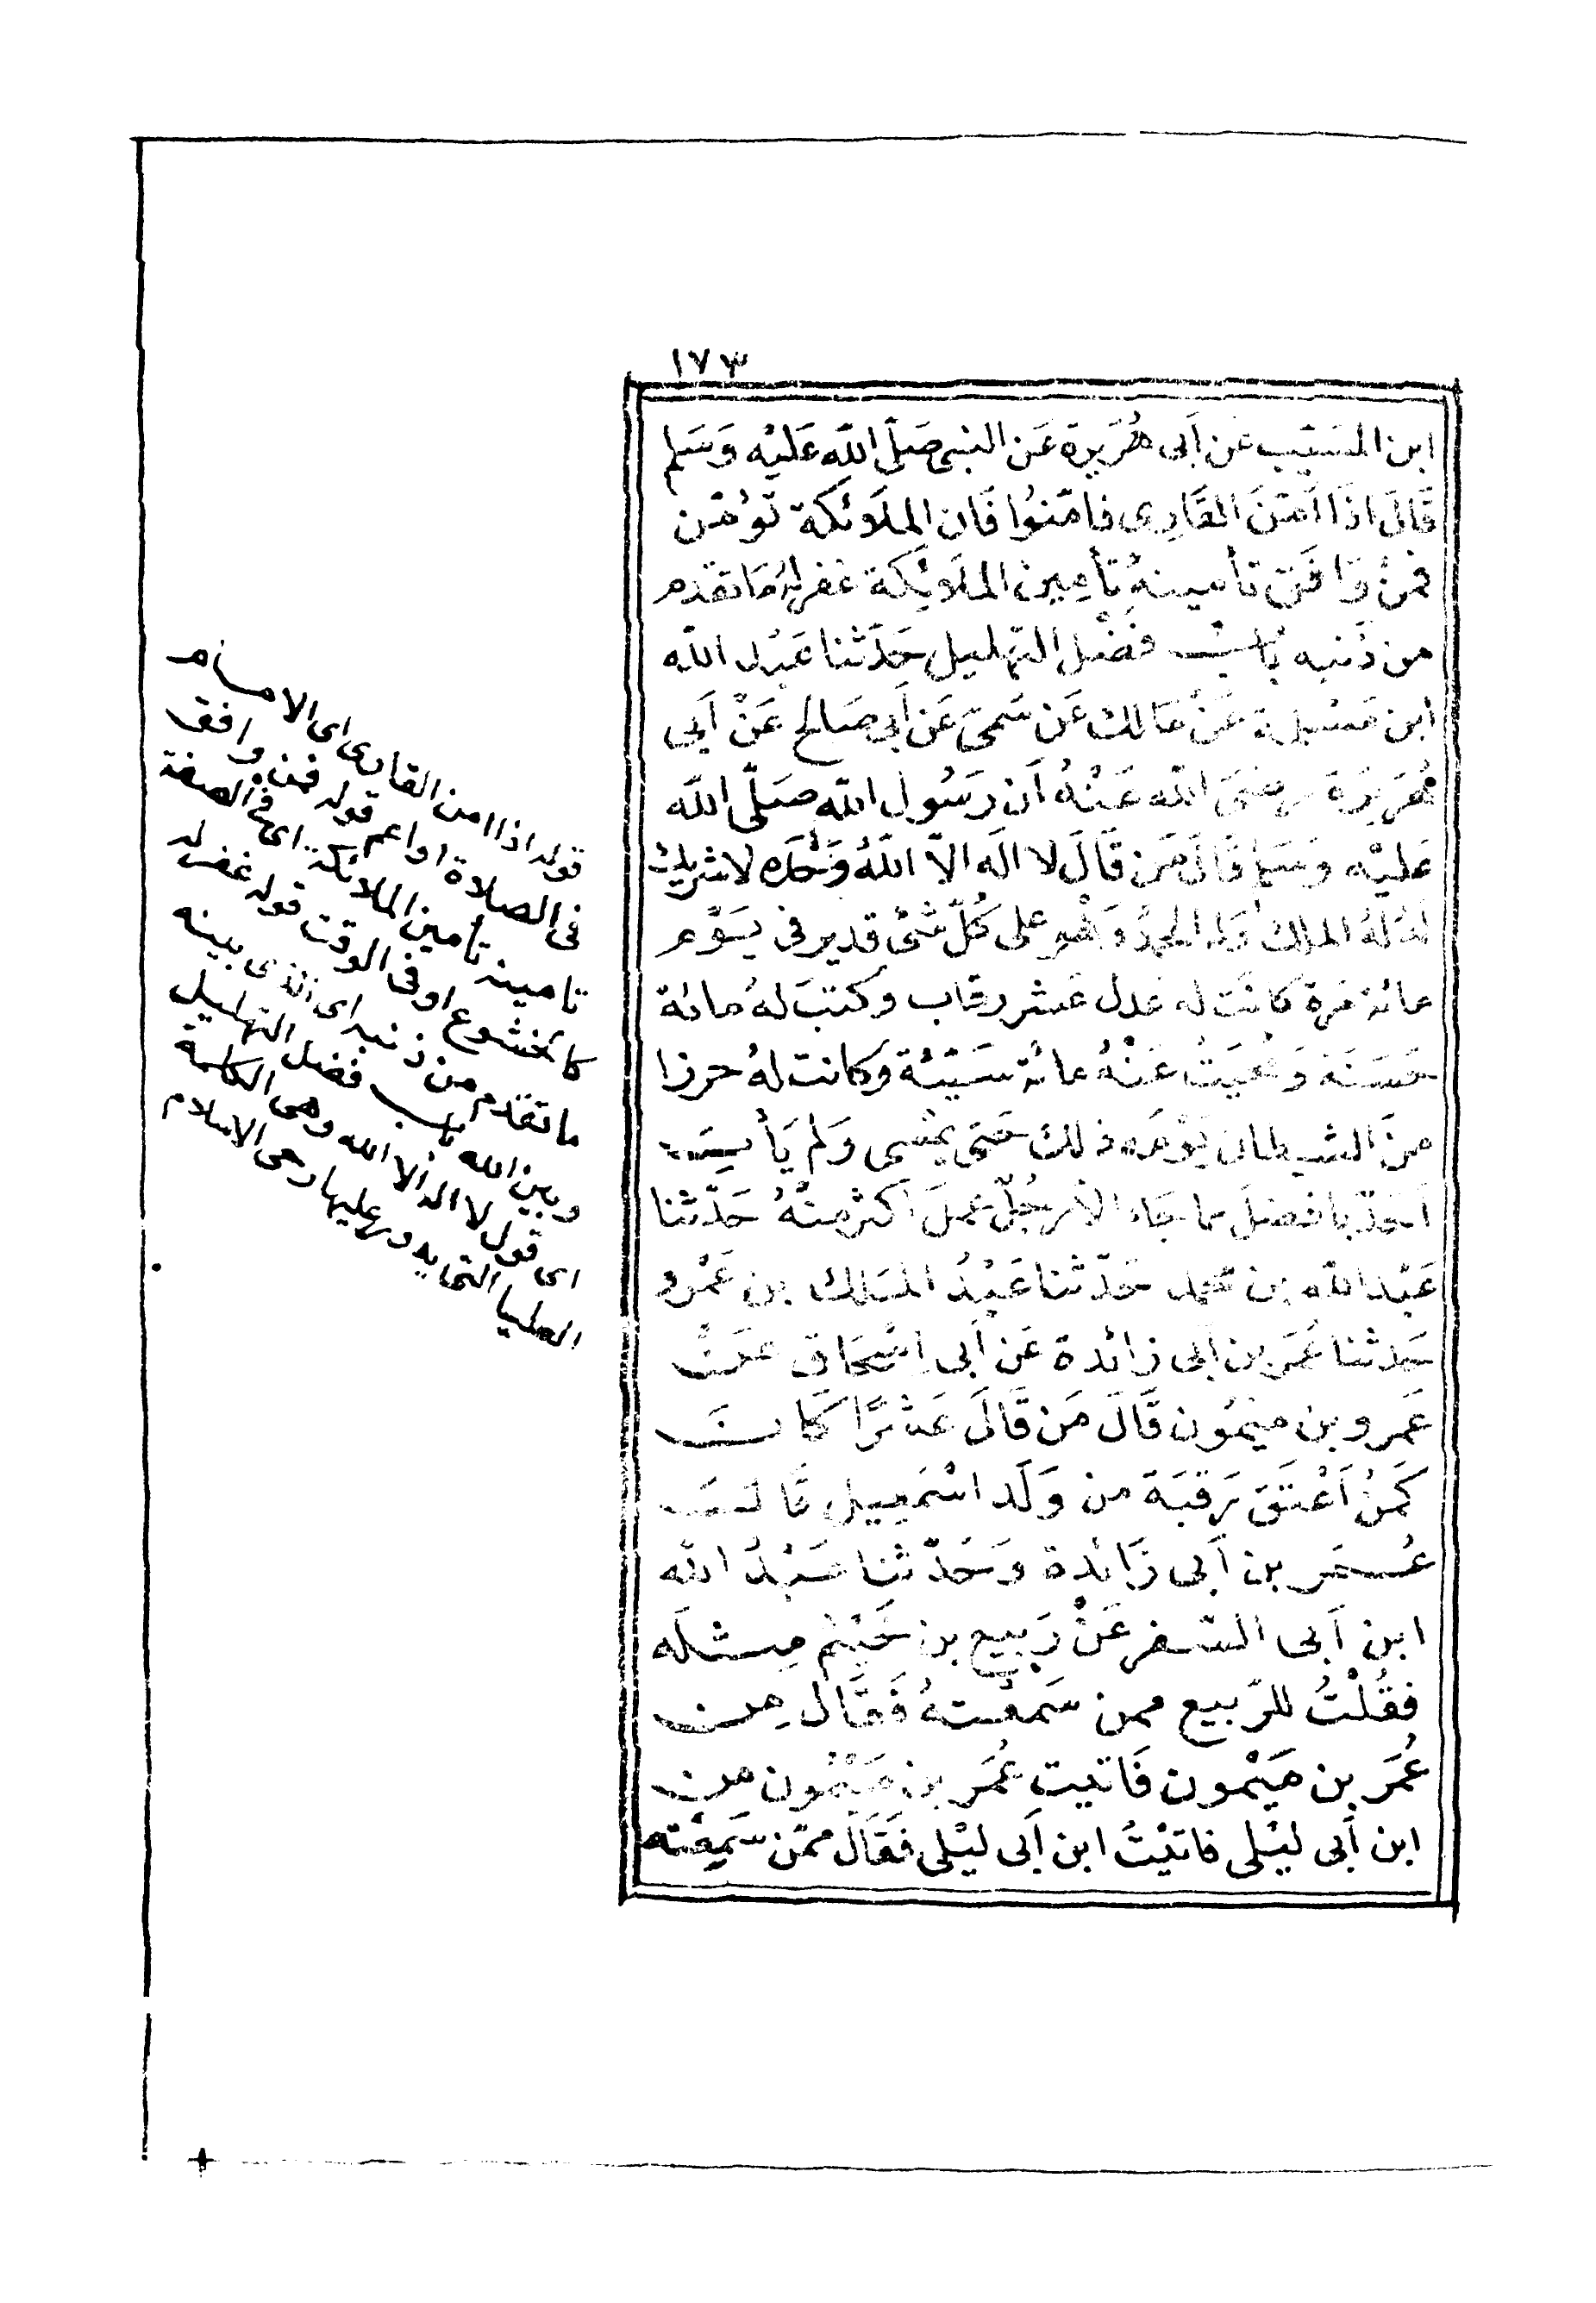 ١٧٣
ابن المسَيّب عَن أَبى هُرَيرة عَن النبى صَلّى اللّه عَليْه وَسَلم
قَالَ اذَا اَمّنَ القَارِى فامّنوُا فَان الملَائكَة توُمّن
فمنْ وَافَق تأمينهُ تأمِين الملَائِكَة غفر لهُ مَا تقدم
من ذَنبه بَابُ فضْل التّهليل حَدّثنا عَبْد اللّه
ابن مَسْلمة عَنْ مَالك عَن سَمىّ عَن أَبى صَالح عَنْ أَبى
هُرَيرَةَ رضىَ اللّه عَنْهُ أَن رَسُول اللّه صَلّى اللّه
عَليْه وَسَلم قَالَ مَن قَالَ لا الَه الاّ اللّهُ وَحْدَه لا شريك
لهُ لَهُ الملك وَله الحمدُ وَهْو على كُلّ شَىْ قدير فى يَوْم
مائة مَرة كانَت له عَدل عَشر رقاب وكتبَ لهُ مائة
حَسَنَة وَمُحيَتْ عَنْهُ مائة سَيّئة وكانت لهُ حرزا
منَ الشيطان يَوْمَه ذلك حَتى يمْسى وَلم يَأت
اَحَدٌ بافضلَ مما جَاء الاّ رجُلٌ عملَ اكثر منْهُ حَدّثنا
عَبْد اللّه بن محمد حَدّثنا عَبْدُ المَلك بن عَمْرو
حَدثنا عُمَر بن أبى زائدة عَن أَبى اسْحَاق عَنْ
عَمرو بن ميْمُون قَالَ مَن قَالَ عَشْرًا كَانَ
كمَنْ اَعْتَقَ رَقبَة من وَلَد اسْمَعِيل قَالَ
عُمَر بن أَبى زَائدة وَحَدّثنا عَبْدُ اللّه
ابن أَبى السّفر عَنْ رَبيع بن خَيْثم مِثلَه
فقُلْتُ للرّبيع ممن سَمعْتهُ فَقَال مِن
عُمَر بن مَيْمون فَاتيت عُمَر بن مَيْمُون من
ابن أَبى ليْلى فاتيْتُ ابن أَبى ليْلى فَقَالَ ممّن سَمِعْته
قوله اذا امن القارى اى الامام
فى الصلاة او اعم قوله فمن وافق
تامينه تامين الملائكة اى فى الصفة
كالخشوع او فى الوقت قوله غفر له
ما تقدم من ذنبه اى الذى بينه
وبين الله باب فضل التهليل
اى قول لا اله الا الله وهى الكلمة
العليا التى يدور عليها رحى الاسلام